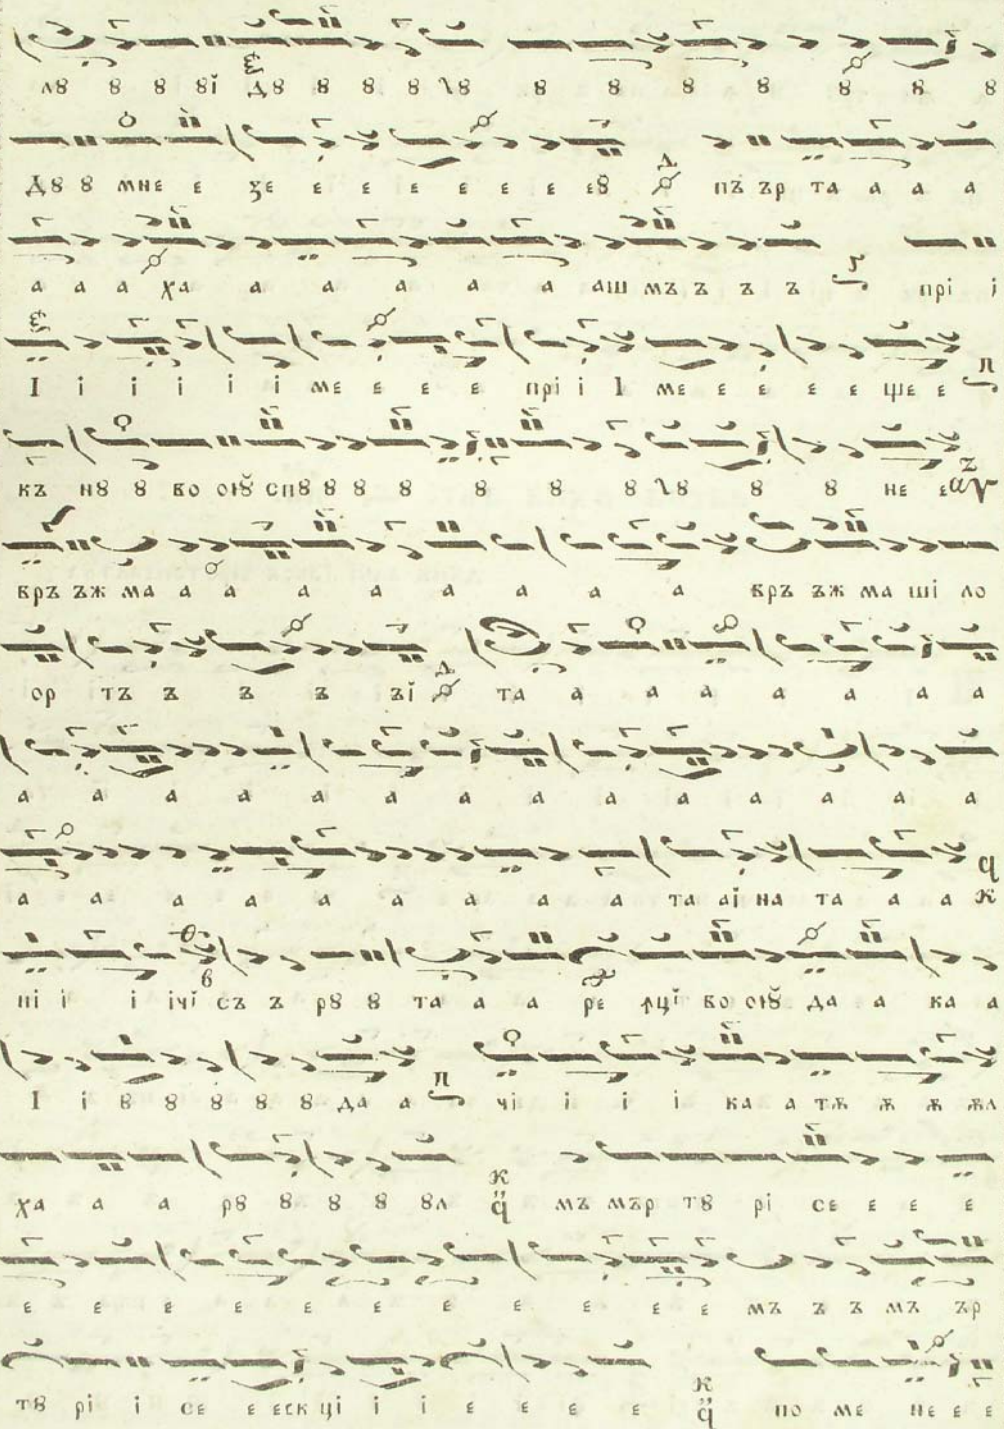 лꙋ ꙋ ꙋ ꙋї дꙋ ꙋ ꙋ ꙋ лꙋ ꙋ ꙋ ꙋ ꙋ ꙋ ꙋ ꙋ
Дꙋ ꙋ мне е ꙁе е е е е е е еꙋ пъ ър та а а а
а а а ха а а а а а аш мъ ъ ъ ъ прі і
І і і і і і ме е е е прі і І ме е е е е ще е
къ нꙋ ꙋ во ою̆ спꙋ ꙋ ꙋ ꙋ ꙋ ꙋ ꙋ лꙋ ꙋ ꙋ не е
връ ъж ма а а а а а а а а връ ъж ма ші ло
ор тъ ъ ъ ъ ъї та а а а а а а а
а а а а а а а а а а а а а а
а а а а а а а а а та аї на та а а
пі і і ічі съ ъ рꙋ ꙋ та а а ре ꙟцї во ою̆ да а ка а
І і ꙋ ꙋ ꙋ ꙋ ꙋ да а чі і і і ка а тѫ ѫ ѫ ѫл
ха а а рꙋ ꙋ ꙋ ꙋ ꙋл мъ мър тꙋ рі се е е е
е е е е е е е е е е е мъ ъ ъ мъ ър
тꙋ рі і се е еск ці і і е е е е по ме не е е